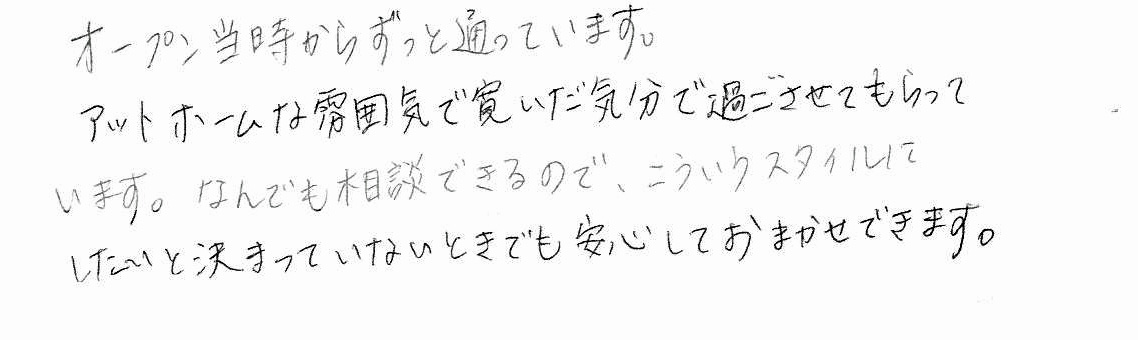 オープン当時からずっと通っています。
アットホームな雰囲気で寛いだ気分で過ごさせてもらって
います。なんでも相談できるので、こういうスタイルに
したいと決まっていないときでも安心しておまかせできます。